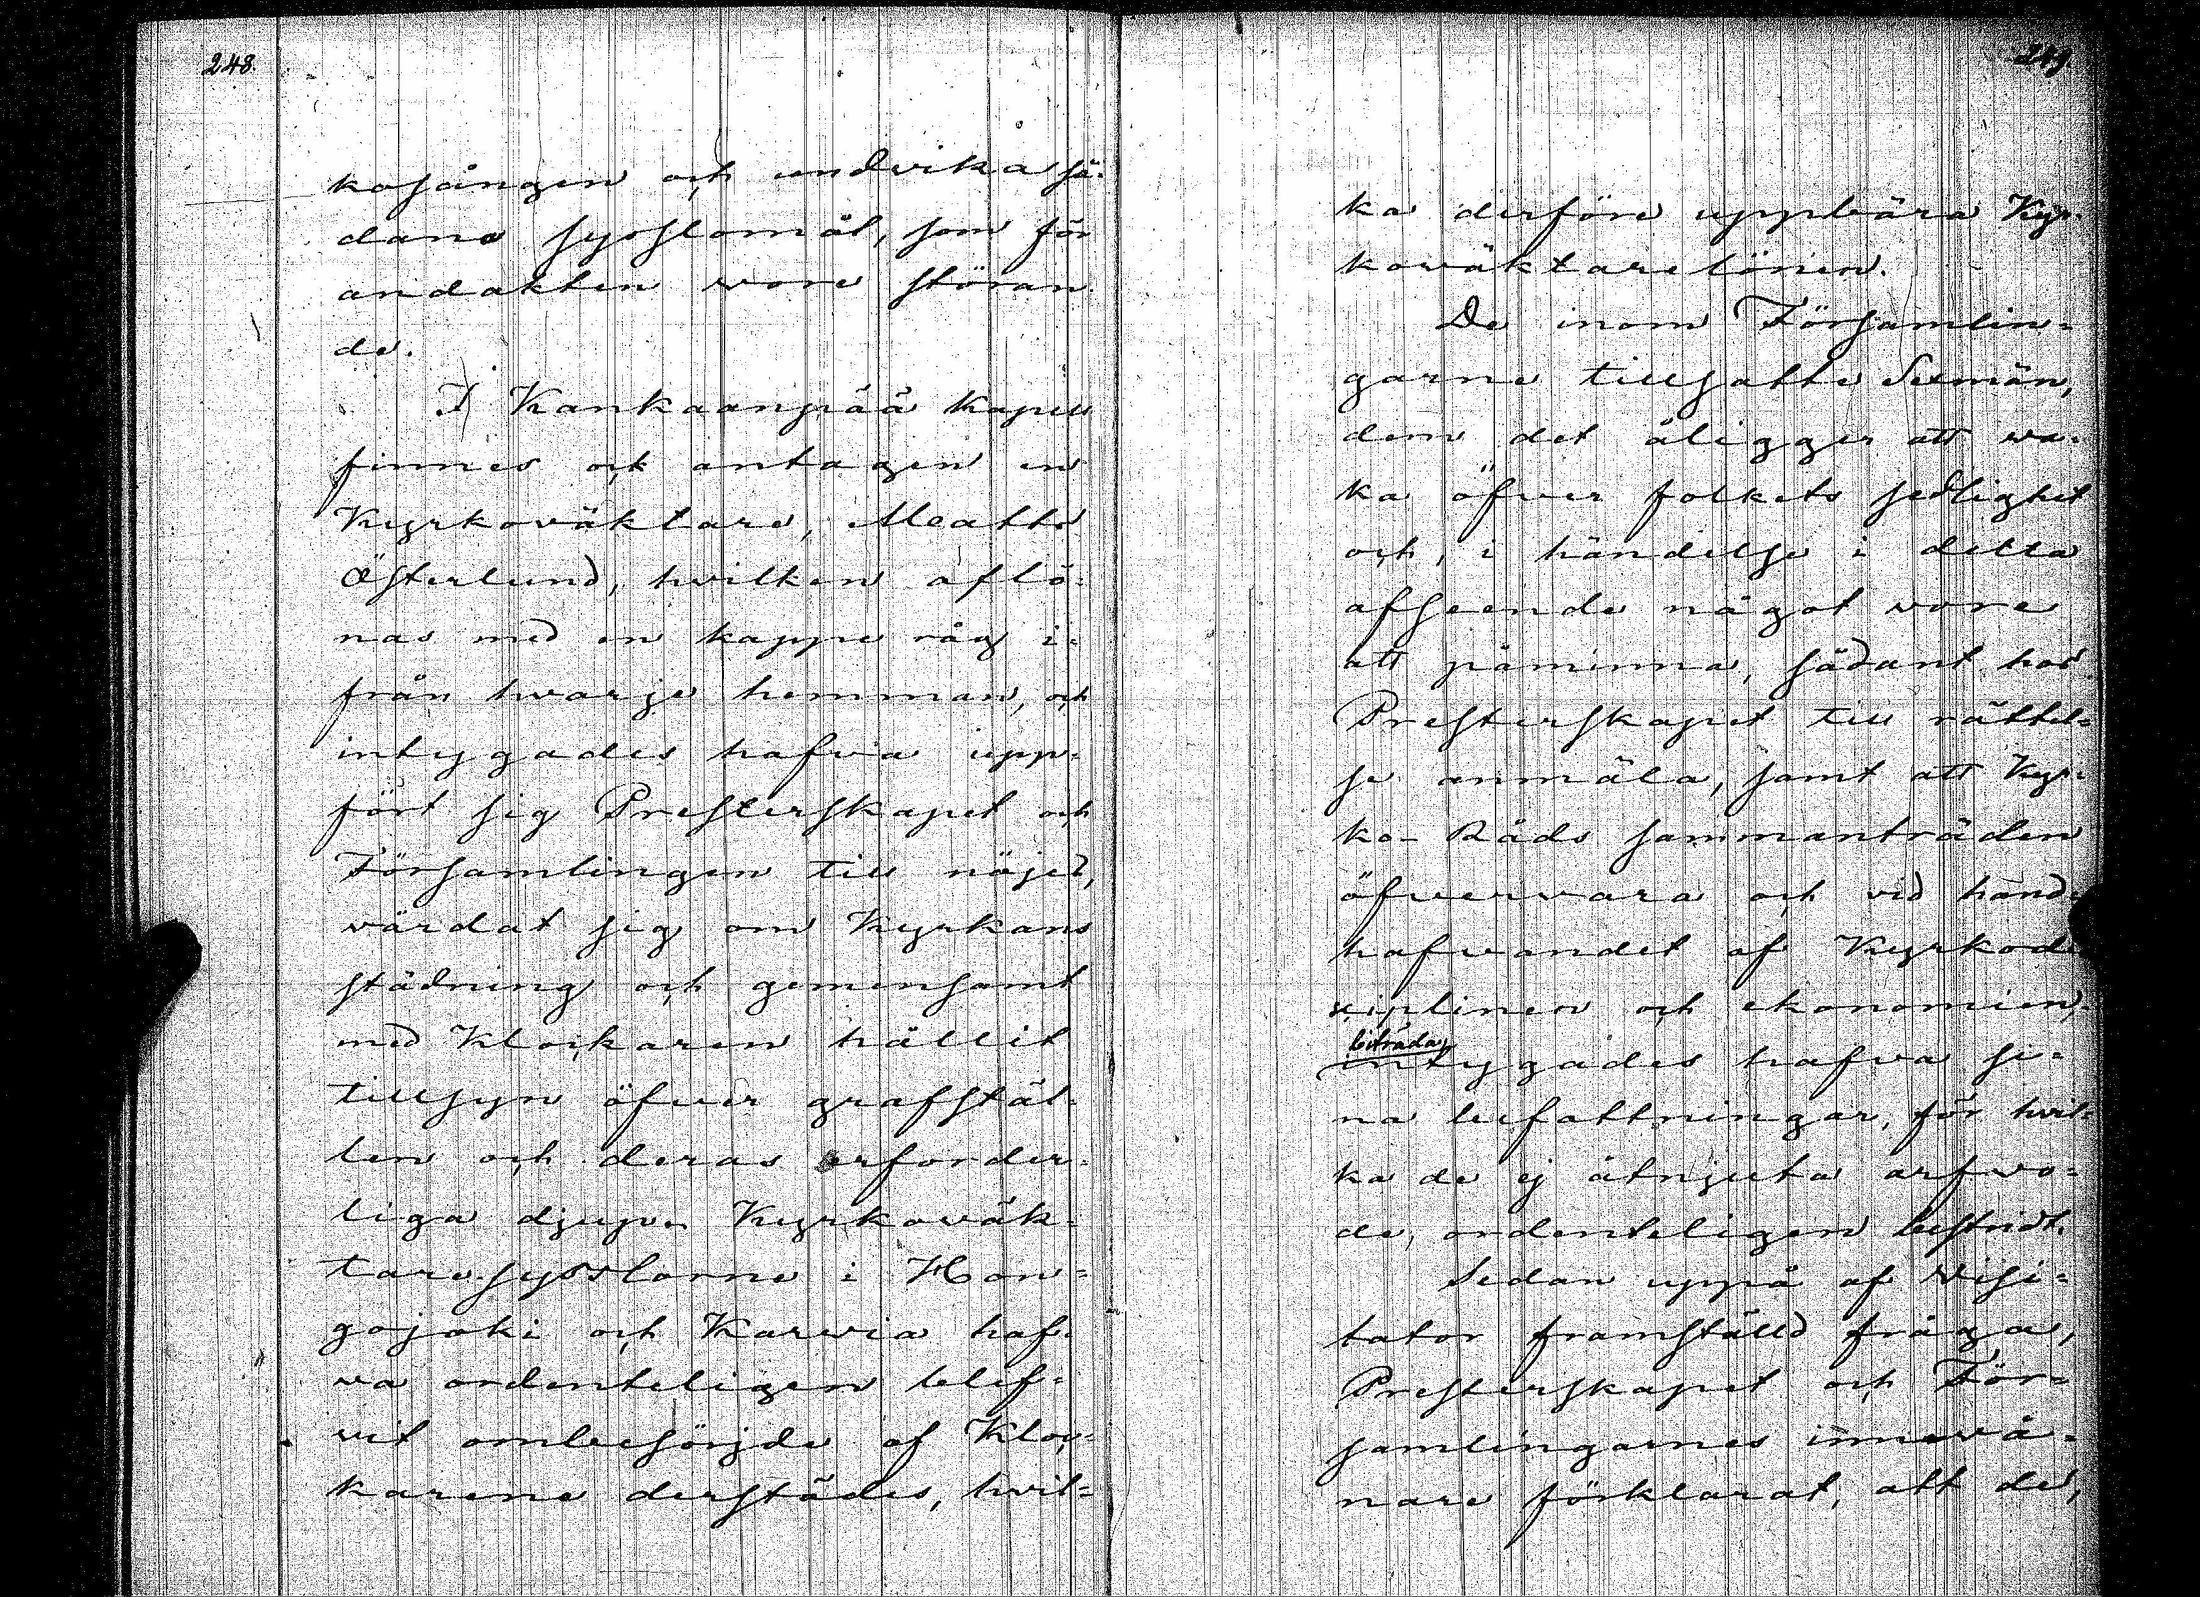 248.
kosången och undvika så-
dane sysslomål, som för
andakten vore störan
de.
I Kankaanpää Kapell
finnes ock antagen en
Kyrkoväktare, Matts
Österlund, hvilken aflö-
nas med en kappe råg i-
från hvarje hemman, och
intygades hafva upp-
fört sig Presterskapet och
Församlingen till nöjes,
vårdat sig om Kyrkans
städning och gemensamt
med Klockaren hållit
tillsyn öfver grafstäl-
len och deras erforder-
liga djup. Kyrkoväk-
tare sysslorne i Hon-
gojoki och Karvia haf-
va ordenteligen blif-
vit ombesörjde af Kloc-
karene derstädes, hvil-
249.
ka derföre uppbära Kyr-
koväktare lönen.
De inom Församlin-
garne tillsatte Sexmän,
dem det åligger att va-
ka öfver folkets sedlighet
och, i händelse i detta
afseende något vore
att påminna, sådant hos
Presterskapet till rättel-
se anmäla, samt att Kyr-
ko-Råds sammanträden
öfvervara och vid hand-
hafvandet af Kyrkodi
siplinen och ekonomien
biträda,
intygades hafva si-
na befattningar, för hvil-
ka de ej åtnjuta arfvo-
de, ordenteligen bestridt.
Sedan uppå af Visi-
tator framställd fråga,
Presterskapet och För-
samlingarnes innevå-
nare förklarat, att de,